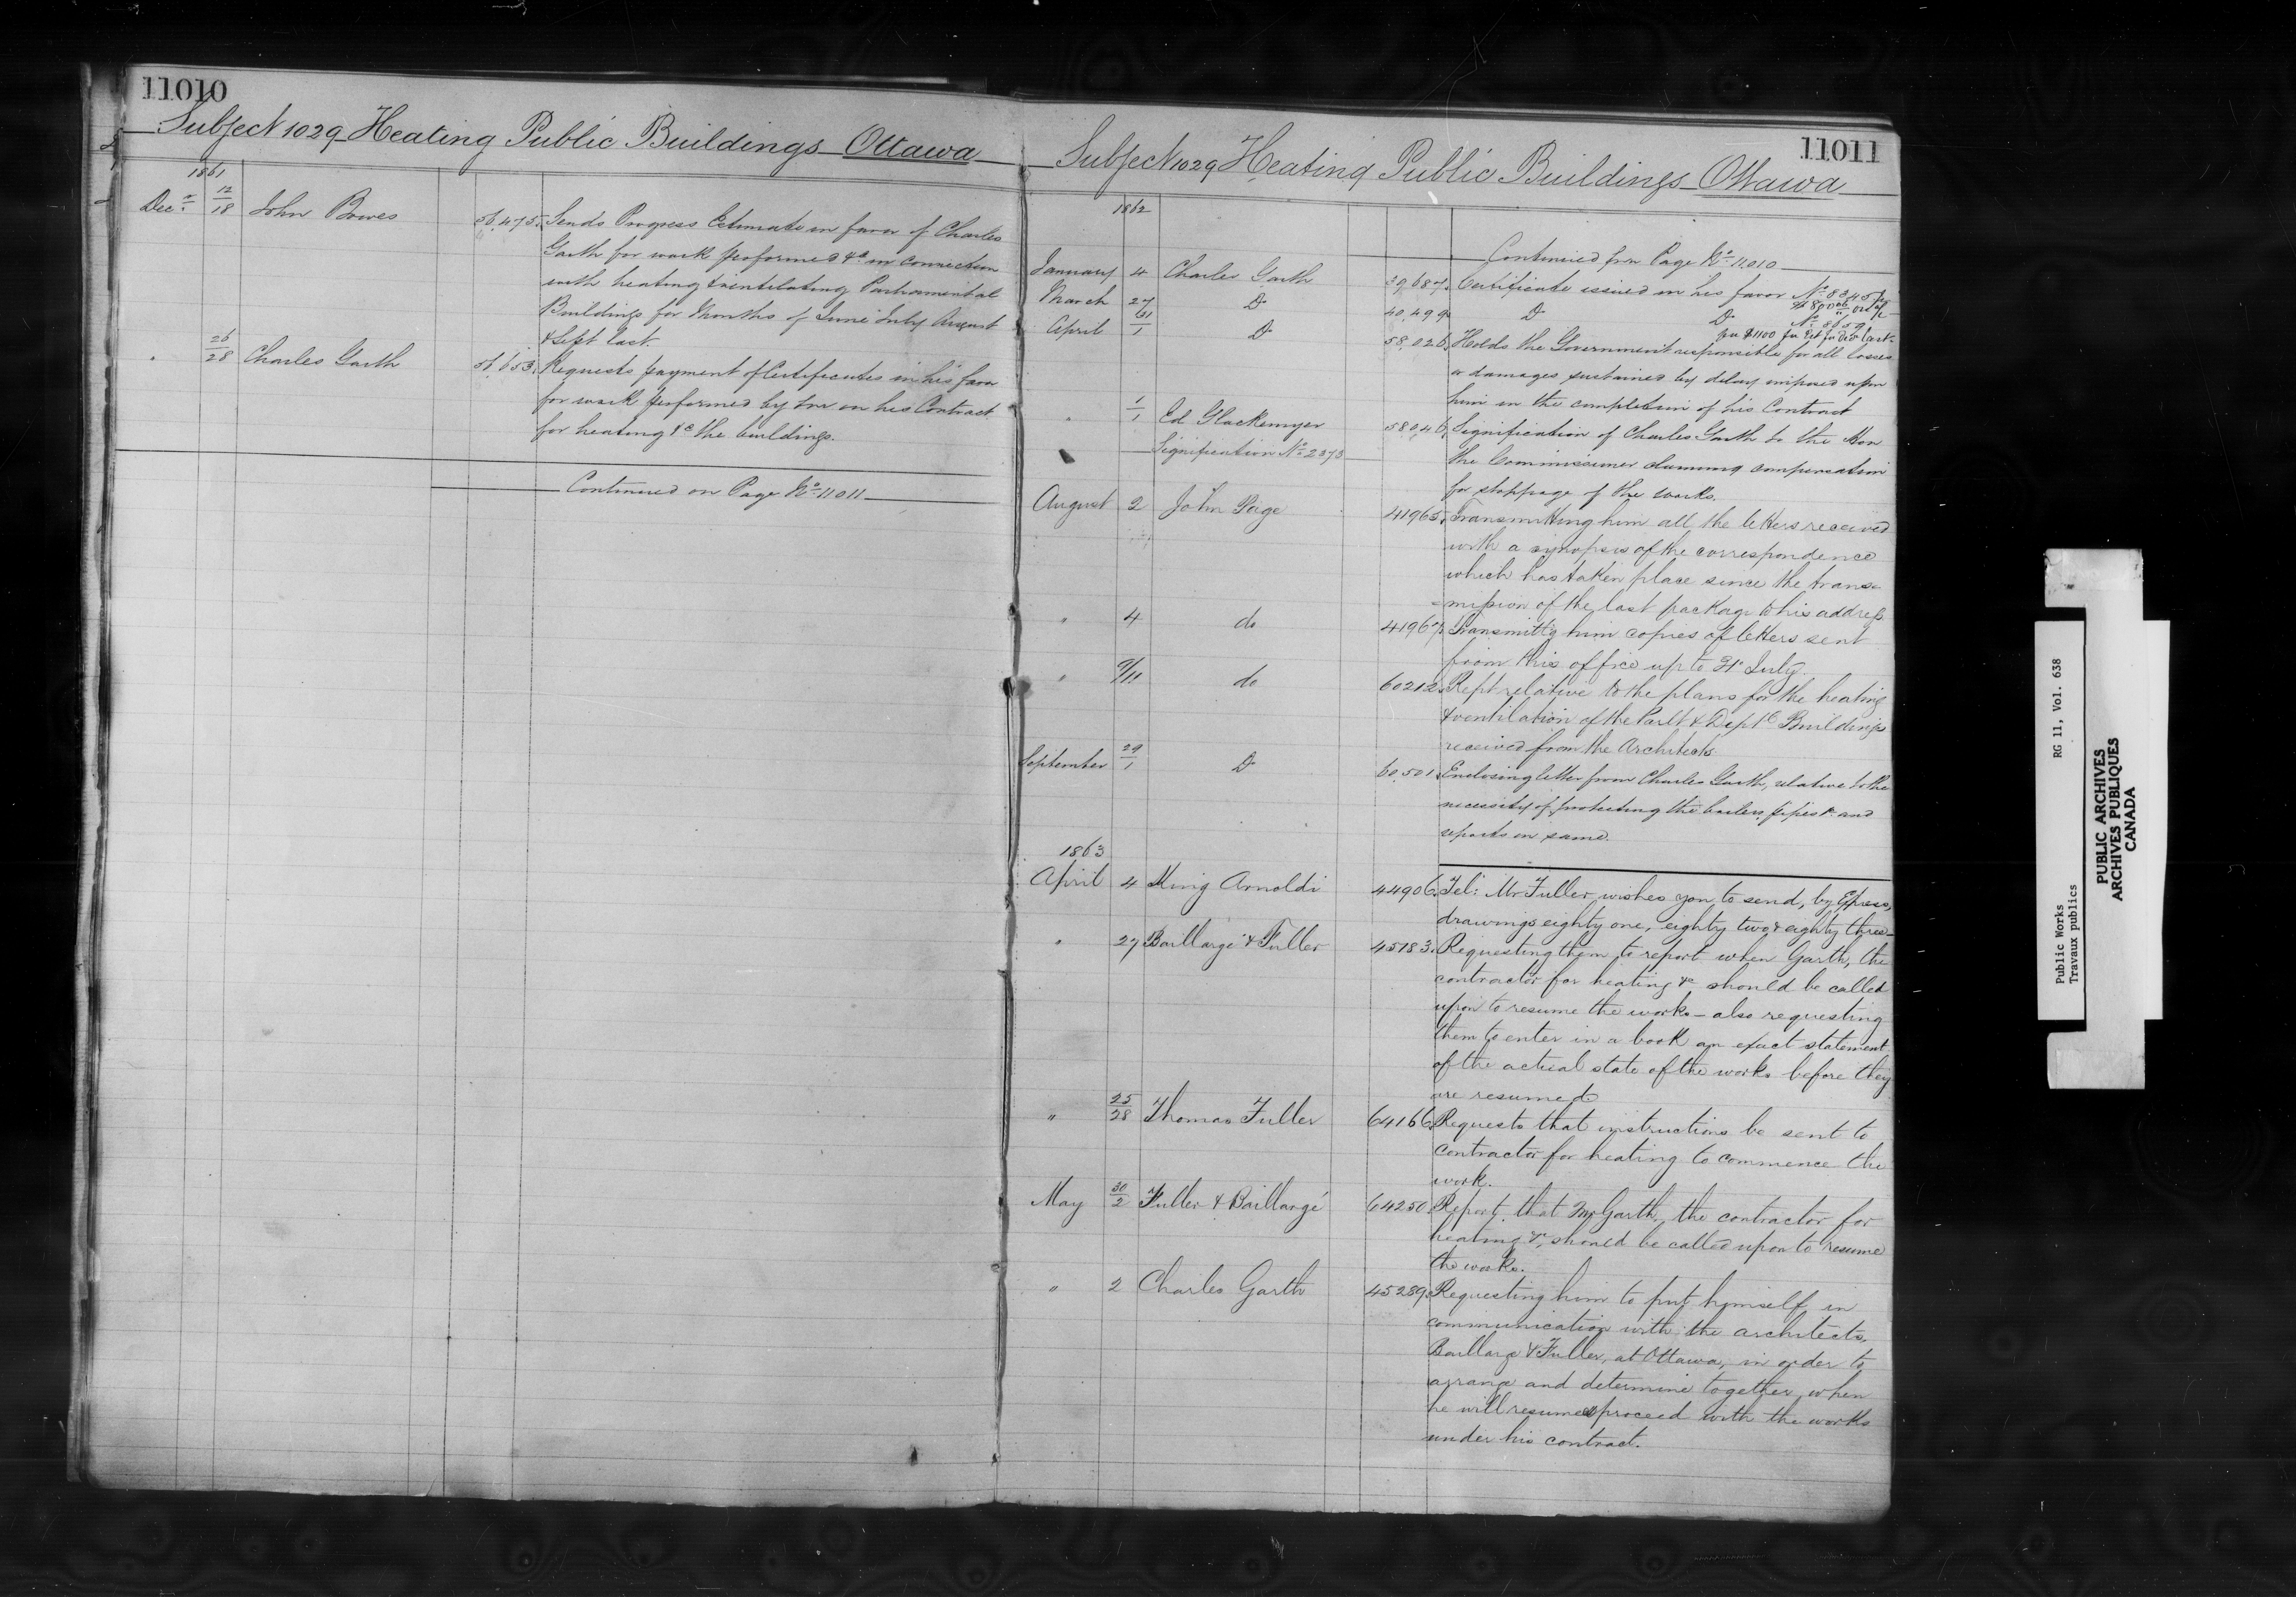 11010
Subject 1029 Heating Public Buildings Ottawa
1861
Decr. 12/18 John Bowes 56,475. Sends Progress Estimate in favor of Charles
Garth for work performed &c in connection
with heating & ventilating Parliamental
Buildings for Months of June July August
& Sept last.
" 26/28 Charles Garth 56,653. Requests payment of Certificates in his favor
for work performed by him on his Contract
for heating &c the buildings.
Continued on Page No 11011
11011
Subject 1029 Heating Public Buildings Ottawa
1862
Continued from Page No 11010
January 4 Charles Garth 39,687. Certificate issued in his favor No
March 27 Do 40,499. Do Do No
for $1100
April 31/1 Do 58,026. Holds the Government responsible for all losses
or damages sustained by delay imposed upon
him in the completion of his Contract
" 1/1 Ed Glackemyer 58,046. Signification of Charles Garth to the Hon
Signification No 2373 the Commissioner claiming compensation
for stoppage of the works.
August 2 John Page 41965. Transmitting him all the letters received
with a synopsis of the correspondence
which has taken place since the trans-
=mission of the last package to his address
" 4 do 41967. Transmittg him copies of letters sent
from this office up to 31st July.
" 9/11 do 60212. Rept relative to the plans for the heating
& ventilation of the Parlt & Deptl Buildings
received from the Architects
September 29/1 Do 60,501. Enclosing letter from Charles Garth, relative to the
necessity of protecting the boilers, pipes &c and
reports on same.
1863
April 4 King Arnoldi 44906. Tel: Mr Fuller wishes you to send, by Express,
drawings eighty one, eighty two & eighty three
" 27 Baillargé & Fuller 45183. Requesting them to report when Garth, the
contractor for heating &c should be called
upon to resume the works - also requesting
them to enter in a book an exact statement
of the actual state of the works before they
are resumed
" 25/28 Thomas Fuller 64166. Requests that instructions be sent to
contractor for heating to commence the
work.
May 30/2 Fuller & Baillargé 64250. Report that Mr Garth, the contractor for
heating &c, should be called upon to resume
the works.
" 2 Charles Garth 45289. Requesting him to put himself in
communication with the architects,
Baillargé & Fuller, at Ottawa, in order to
arrange and determine together, when
he will resume & proceed with the works
under his contract.
Public Works RG 11, Vol. 638
Travaux publics
PUBLIC ARCHIVES
ARCHIVES PUBLIQUES
CANADA